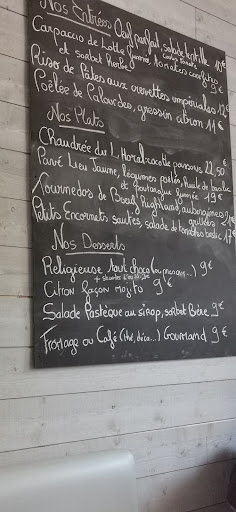 Nos Entrées Oeuf parfait, salade lentille 10€
Carpaccio de Lotte fumée, Tomates confites
et sorbet 9€
Riso de Pates aux crevettes impériales 12€
Poêlée de Palourdes, gressin citron 11€
Nos Plats
Chaudrée du Littoral rocotte parsous 22,50€
Pavé Lieu Jaune, légumes poêlés, Huile de basilic
et poutargue fumée 19€
Tournedos de Boeuf Highland, aubergines
grillées
Petits Encornets sautés salade de tomates basilic 17€
Nos Desserts
Religieuse tout choco (ou presque...) 9€
+ shooter
Citron façon mojito 9€
Salade Pastèque au sirop, sorbet Bière 9€
Fromage ou Café (thé, déca...) Gourmand 9€